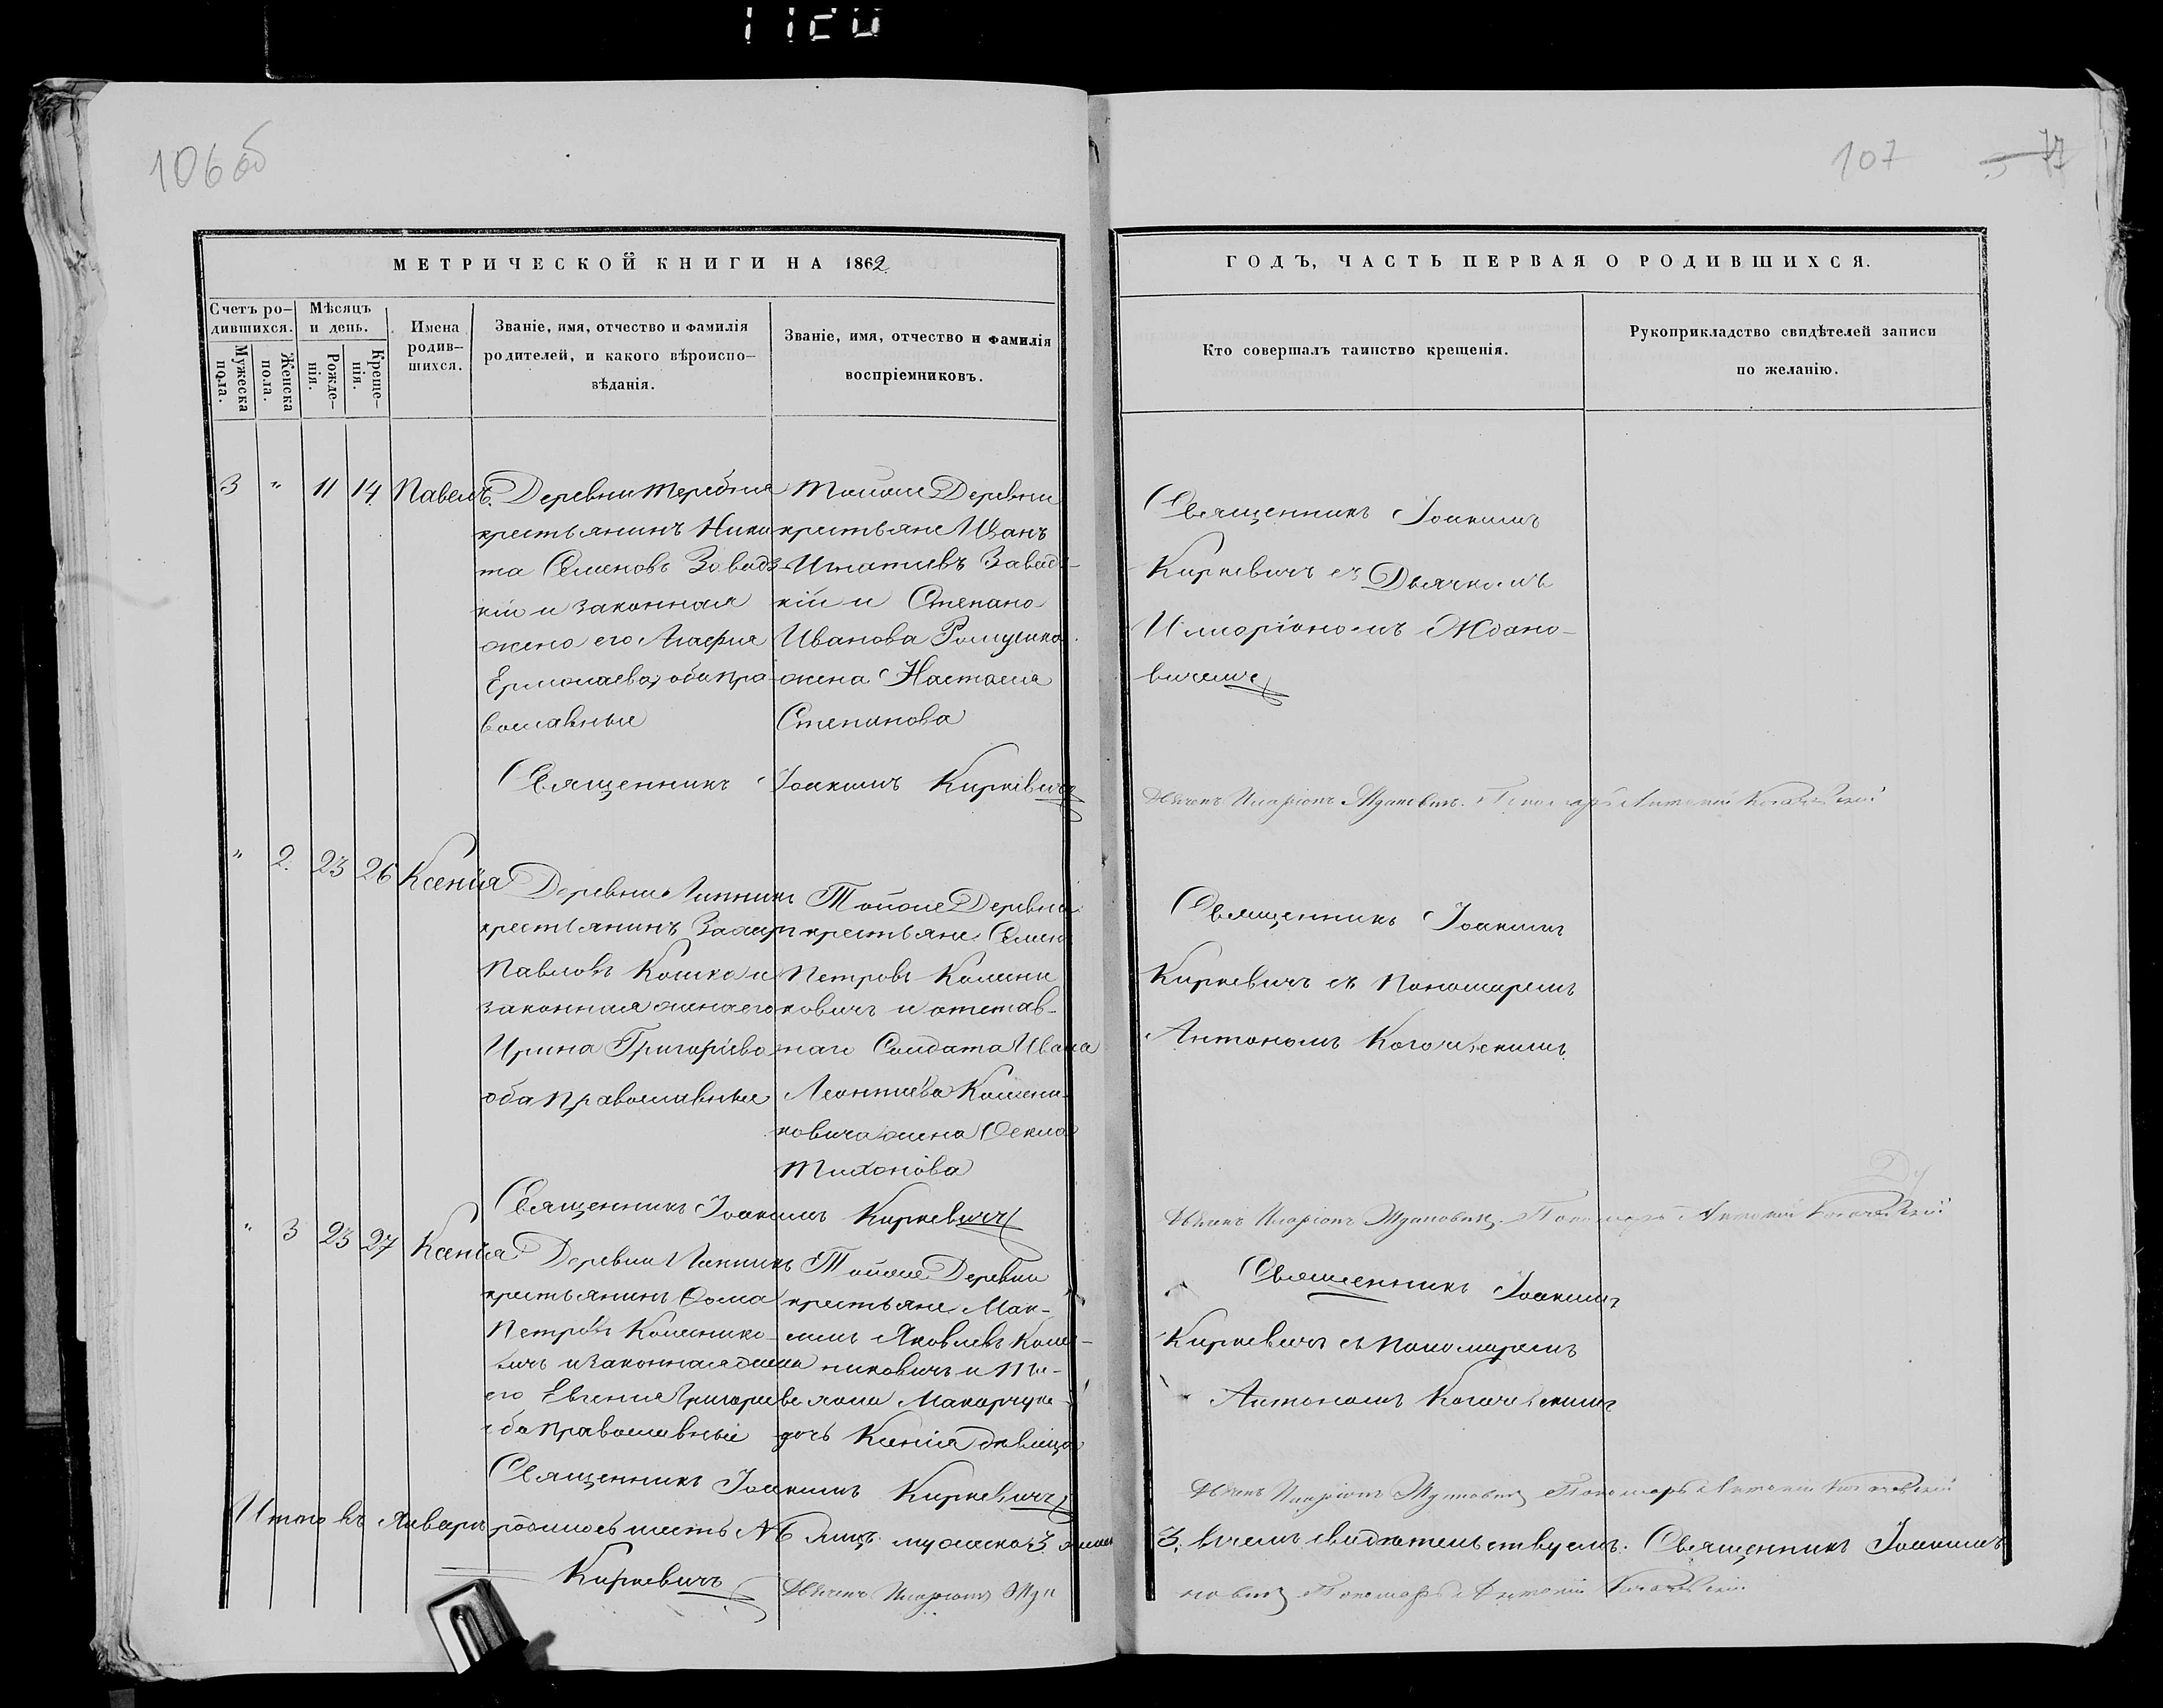 106 об
107
МЕТРИЧЕСКОЙ КНИГИ НА 1862
ГОДЪ, ЧАСТЬ ПЕРВАЯ О РОДИВШИХСЯ.
Счетъ ро-
дившихся.
Мужеска
пола.
Женска
пола.
Мѣсяцъ
и день.
Рожде-
нія.
Креще-
нія.
Имена
родив-
шихся.
Званіе, имя, отчество и фамилія
родителей, и какого вѣроиспо-
вѣданія.
Званіе, имя, отчество и фамилія
воспріемниковъ.
Кто совершалъ таинство крещенія.
Рукоприкладство свидѣтелей записи
по желанію.
3 " 11 14 Павелъ.
Деревни Теребня
крестьянинъ Ники
та Семеновъ Завадз
кій и законная
жена его Агафия
Ермолаева, оба пра-
вославные
Тойже Деревни
крестьяне Иванъ
Игнатиевъ Завадз-
кій и Степана
Иванова Ромушко
жена Настасия
Степанова
Священникъ Іоакимъ
Киркевичъ съ Дьячкомъ
Илларіономъ Ждано-
вичемъ
Священникъ Іоакимъ Киркевичъ
Дьячекъ Иларіонъ Ждановичъ. Пономарь Антоній
" 2. 23 26 Ксенія
Деревни Липники
крестьянинъ Захаръ
Павловъ Кошка и
законная жена его
Ирина Григоріева
оба православные
Тойже Деревни
крестьяне Семенъ
Петровъ
ковичъ и отстав-
наго Солдата Ивана
Леонтиева
ковича жена Фекла
Тихонова
Священникъ Іоакимъ
Киркевичъ съ Пономаремъ
Антономъ
Священникъ Іоакимъ Киркевичъ
Дьячекъ Иларіонъ Ждановичъ. Пономарь Антоній
" 3 23 27 Ксенія
Деревни Липники
крестьянинъ Фома
Петровъ
вичъ и законная жена
его Евгения Григориева
оба православные
Тойже Деревни
крестьяне Мак-
симъ Яковлевъ
никовичъ и
Макарчука
дочь Ксенія дѣвица
Священникъ Іоакимъ
Киркевичъ съ Пономаремъ
Антономъ
Священникъ Іоакимъ Киркевичъ
Дьячекъ Иларіонъ Ждановичъ Пономарь Антоній
Итого въ Январѣ родилось шесть № 6 лицъ. мужеска 3. женска
3. въ чемъ свидѣтельствуемъ. Священникъ Іоакимъ
Киркевичъ Дьячекъ Иларіонъ Жда
новичъ Пономарь Антоній